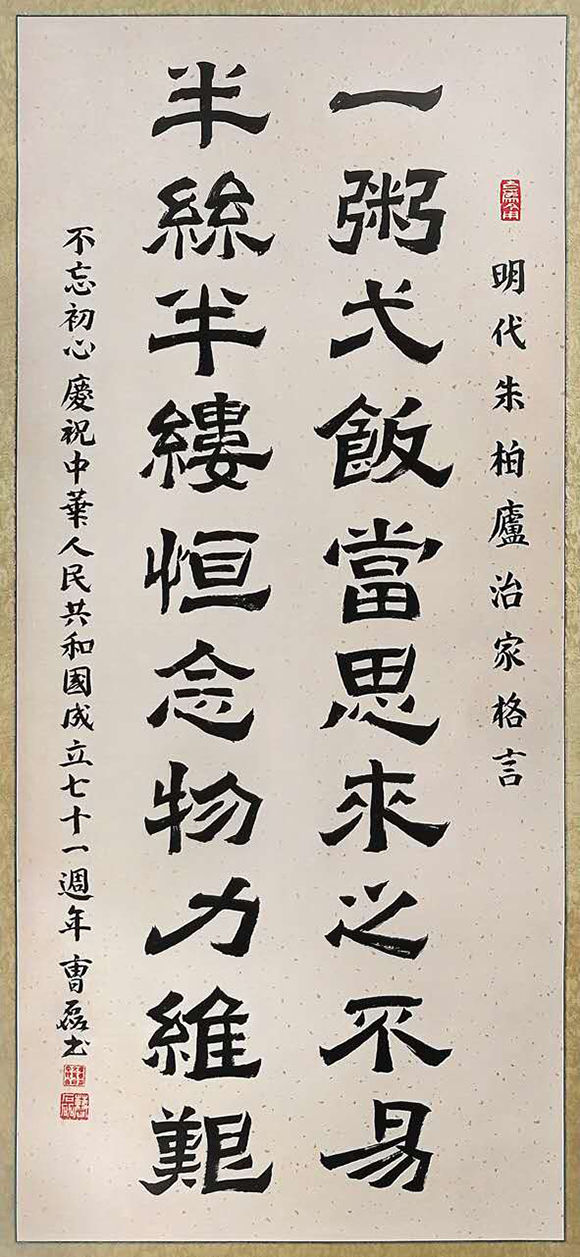 明代朱柏廬治家格言
一粥弌飯當思來之不易
半絲半縷恒念物力維艱
不忘初心 慶祝中華人民共和國成立七十一週年 曹磊书